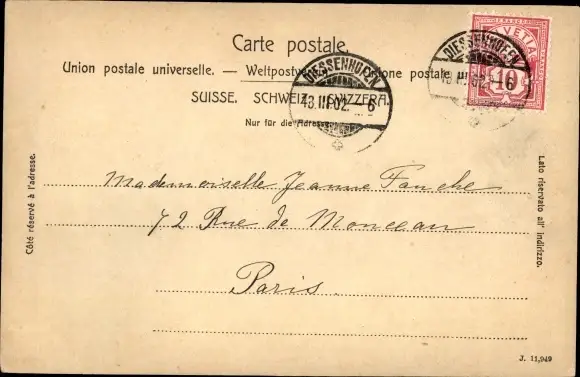 Carte postale.
Union postale universelle. — Weltpostv ione postale
SUISSE. SCHWEIZ. SVIZZERA.
Nur für die Adresse
DIESSENHOFEN
13.III.02.–6
HELVETIA
FRANCO
10
DIESSENHOFEN
13.III.02.–6
Côté réservé à l'adresse.
Mademoiselle Jeanne Fauche
72 Rue de Monceau
Paris.
Lato riservato all' indirizzo.
J. 11,949